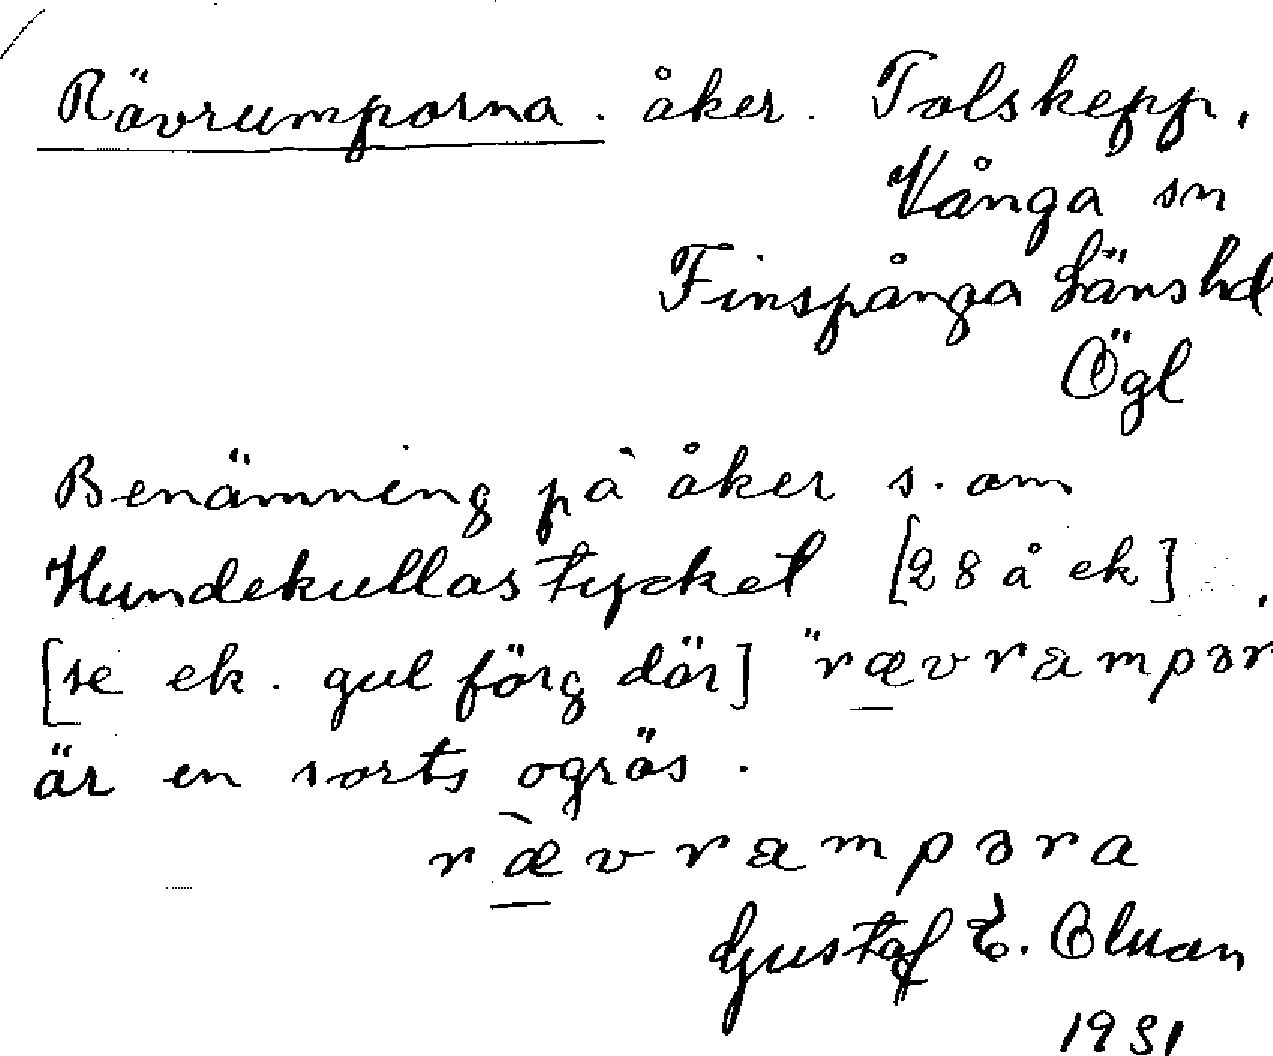 Rävrumporna. åker. Tolskepp,
Vånga sn
Finspånga Länshd
Ögl
Benämning på åker s. om
Hundekullastycket [28 å ek]
[se ek. gul färg där] "rævrampər
är en sorts ogräs.
rævrampəra
Gustaf E.
1931